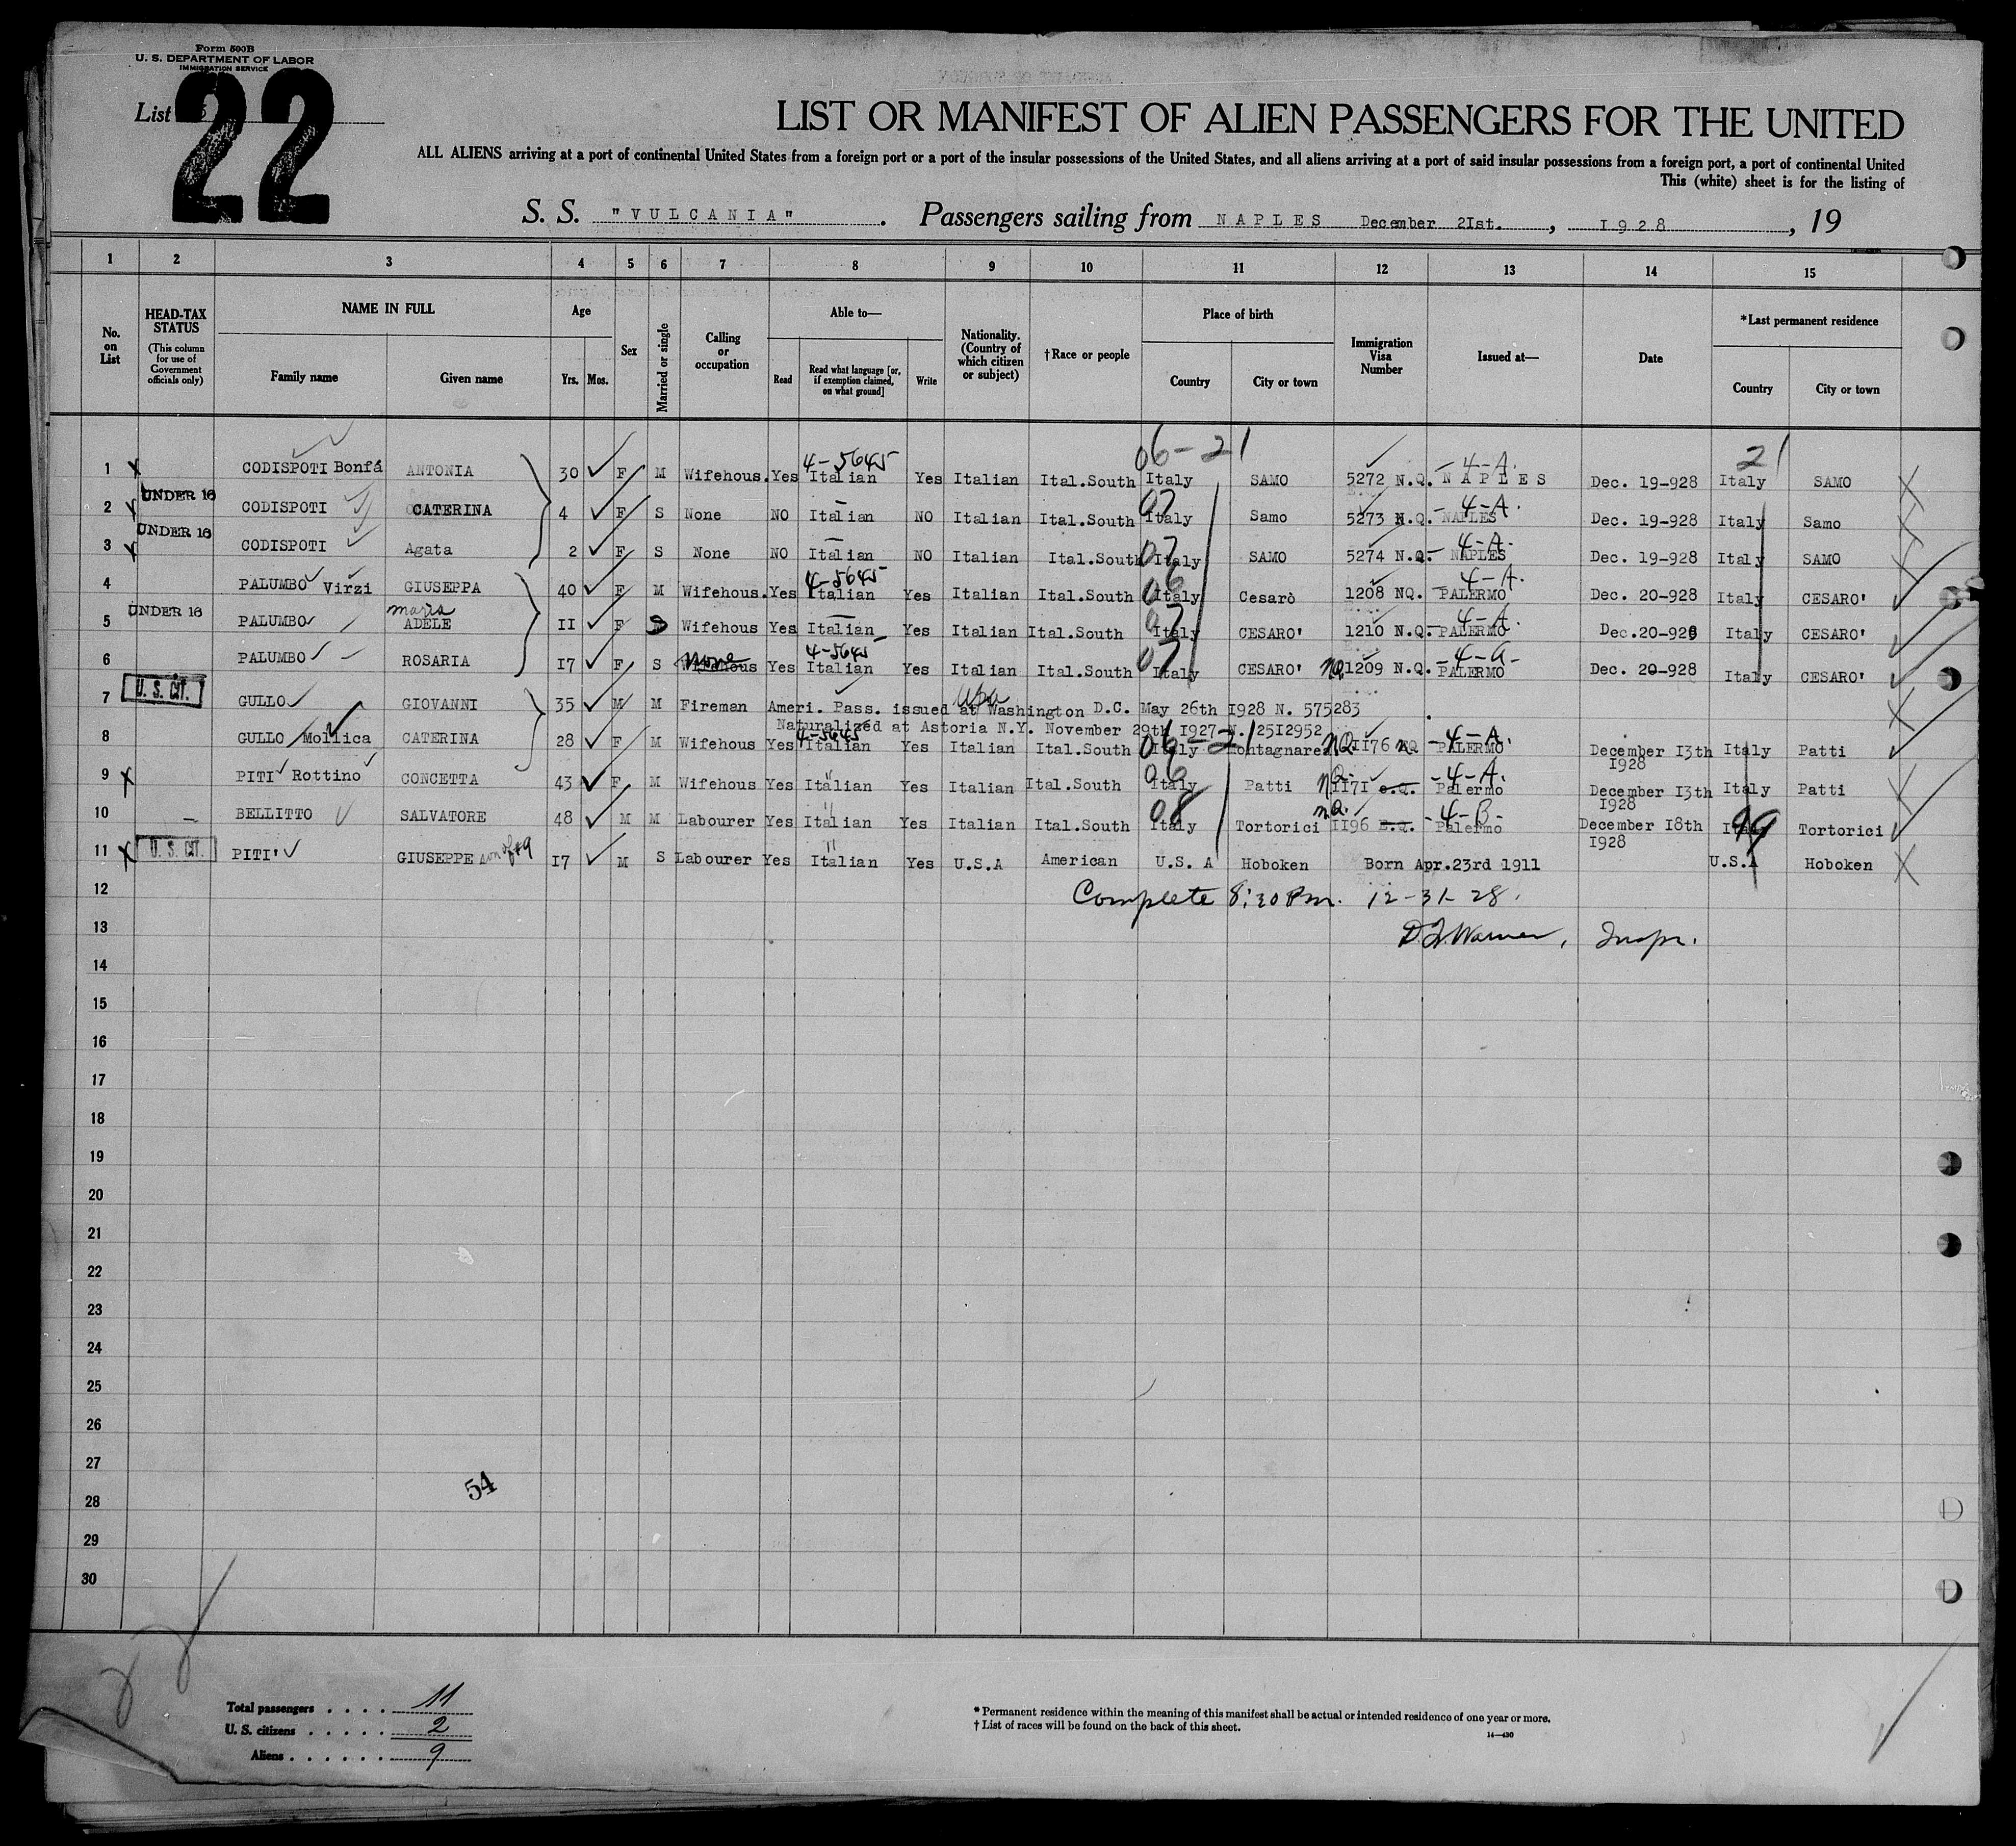 Form 500B
U. S. DEPARTMENT OF LABOR
IMMIGRATION SERVICE
List
22
LIST OR MANIFEST OF ALIEN PASSENGERS FOR THE UNITED
ALL ALIENS arriving at a port of continental United States from a foreign port or a port of the insular possessions of the United States, and all aliens arriving at a port of said insular possessions from a foreign port, a port of continental United
This (white) sheet is for the listing of
S. S. "VULCANIA" . Passengers sailing from NAPLES December 2Ist. , I928 , 19
1 2 3 4 5 6 7 8 9 10 11 12 13 14 15
No. on List
HEAD-TAX STATUS
(This column for use of Government officials only)
NAME IN FULL
Family name Given name
Age
Yrs. Mos.
Sex
Married or single
Calling or occupation
Able to—
Read
Read what language [or, if exemption claimed, on what ground]
Write
Nationality. (Country of which citizen or subject)
†Race or people
Place of birth
Country City or town
Immigration Visa Number
Issued at—
Date
*Last permanent residence
Country City or town
06-21
4-5645 -4-A. 21
1 X CODISPOTI Bonfá ANTONIA 30 F M Wifehous. Yes Italian Yes Italian Ital.South Italy SAMO 5272 N.Q. NAPLES Dec. 19-928 Italy SAMO X
UNDER 16 07 -4-A.
2 X CODISPOTI CATERINA 4 F S None NO Italian NO Italian Ital.South Italy Samo 5273 N.Q. NAPLES Dec. 19-928 Italy Samo X
UNDER 16 07 4-A.
3 X CODISPOTI Agata 2 F S None NO Italian NO Italian Ital.South Italy SAMO 5274 N.Q. NAPLES Dec. 19-928 Italy SAMO
4-5645 06 -4-A.
4 PALUMBO Virzi GIUSEPPA 40 F M Wifehous. Yes Italian Yes Italian Ital.South Italy Cesarò 1208 NQ. PALERMO Dec. 20-928 Italy CESARO'
UNDER 16 maria 07 -4-A.
5 PALUMBO ADELE II F S Wifehous Yes Italian Yes Italian Ital.South Italy CESARO' 1210 N.Q. PALERMO Dec.20-928 Italy CESARO'
none 4-5645 07 -4-A-
6 PALUMBO ROSARIA I7 F S Wifehous Yes Italian Yes Italian Ital.South Italy CESARO' NQ 1209 N.Q. PALERMO Dec. 20-928 Italy CESARO'
U. S. CIT. USA
7 GULLO GIOVANNI 35 M M Fireman Ameri. Pass. issued at Washington D.C. May 26th I928 N. 575283 X
Naturalized at Astoria N.Y. November 29th I927 N. 25I2952
4-5645 06-21 -4-A.
8 GULLO Mollica CATERINA 28 F M Wifehous Yes Italian Yes Italian Ital.South Italy Montagnarea NQ II76 NQ PALERMO December I3th I928 Italy Patti
06 NQ. -4-A.
9 X PITI Rottino CONCETTA 43 F M Wifehous Yes Italian Yes Italian Ital.South Italy Patti II7I Palermo December I3th I928 Italy Patti X
08 NQ. -4-B- 99
10 BELLITTO SALVATORE 48 M M Labourer Yes Italian Yes Italian Ital.South Italy Tortorici II96 Palermo December I8th I928 Italy Tortorici
11 X U. S. CIT. PITI' GIUSEPPE son of #9 I7 M S Labourer Yes Italian Yes U.S.A American U.S. A Hoboken Born Apr.23rd 1911 U.S.A Hoboken X
12 Complete 8:20 P.m. 12-31-28.
13 Warner, Inspr.
14
15
16
17
18
19
20
21
22
23
24
25
26
27
54
28
29
30
Total passengers . . . . 11
U. S. citizens . . . . . 2
Aliens . . . . . . 9
* Permanent residence within the meaning of this manifest shall be actual or intended residence of one year or more.
† List of races will be found on the back of this sheet.
14—430